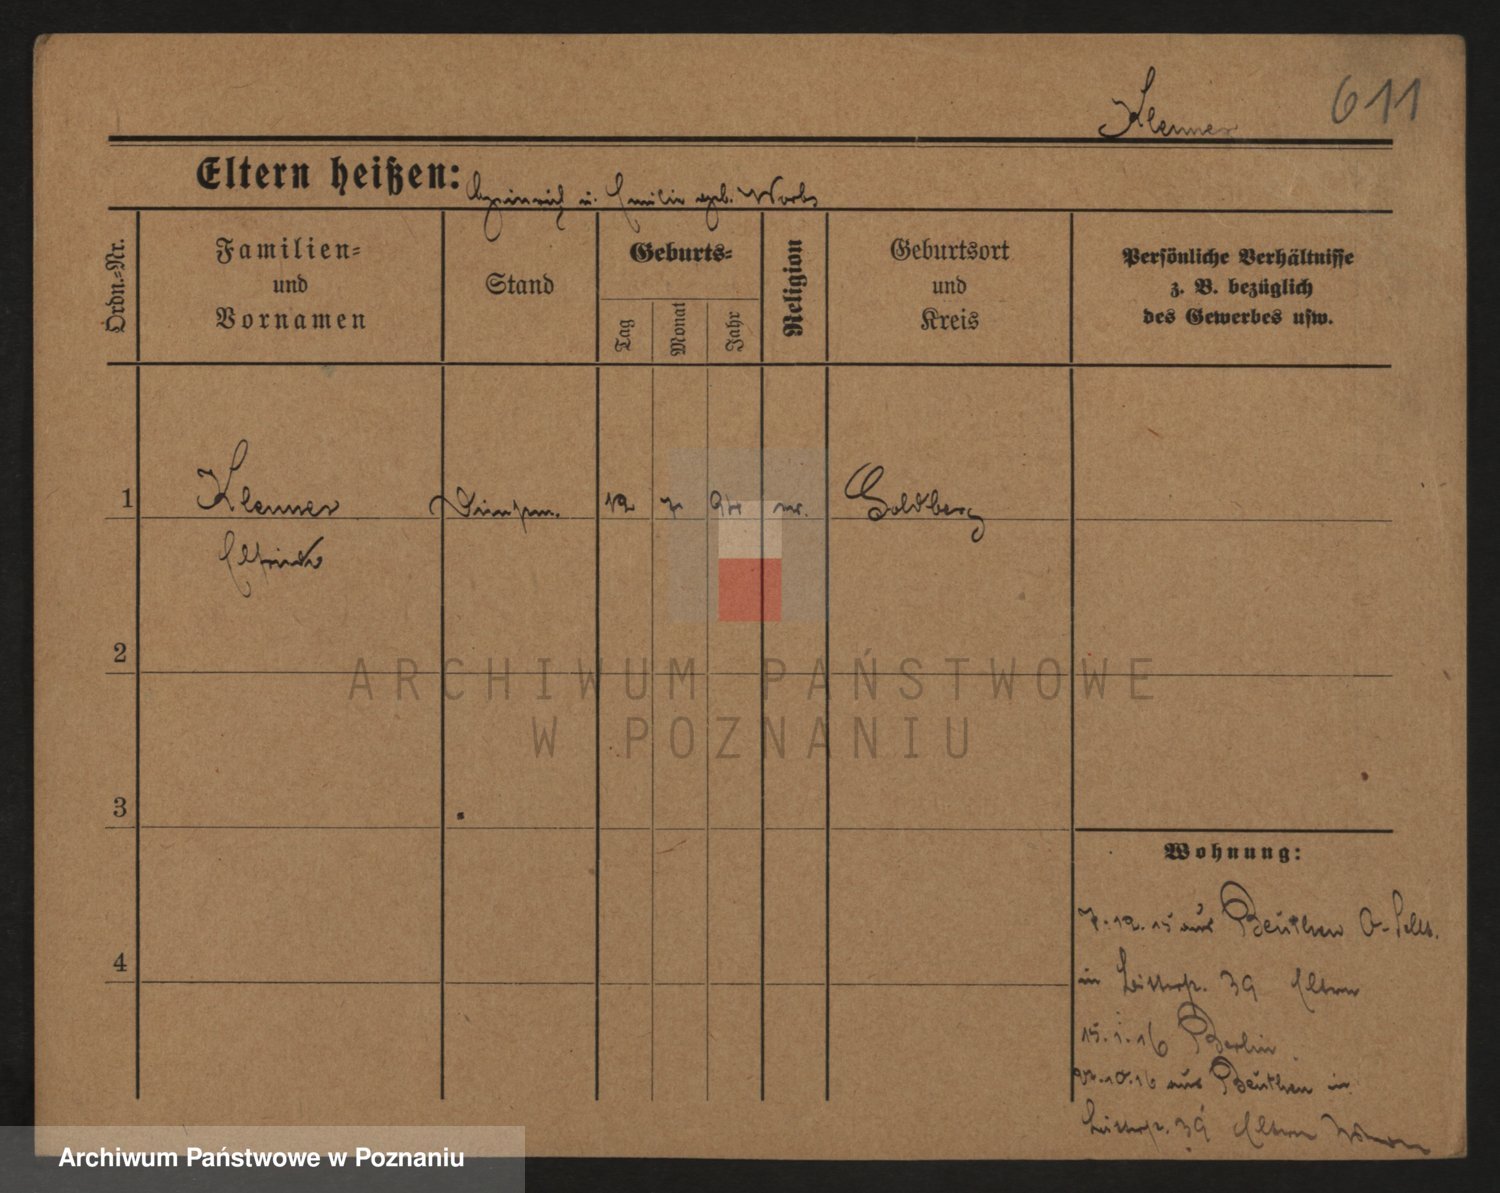 Klenner 611
Eltern heißen: Heinrich u. Emilie geb. Worbs
Ordn.-Nr.
Familien-
und
Vornamen
Stand
Geburts-
Tag
Monat
Jahr
Religion
Geburtsort
und
Kreis
Persönliche Verhältnisse
z. B. bezüglich
des Gewerbes usw.
1 Klenner 12 7 Goldberg
Elfriede
2
ARCHIWUM PAŃSTWOWE
W POZNANIU
3
Wohnung:
7.12.15 aus Beuthen O-Schls.
4
in 39 Eltern
15.1.16 Berlin
10.16 aus Beuthen in
39 Eltern
Archiwum Państwowe w Poznaniu